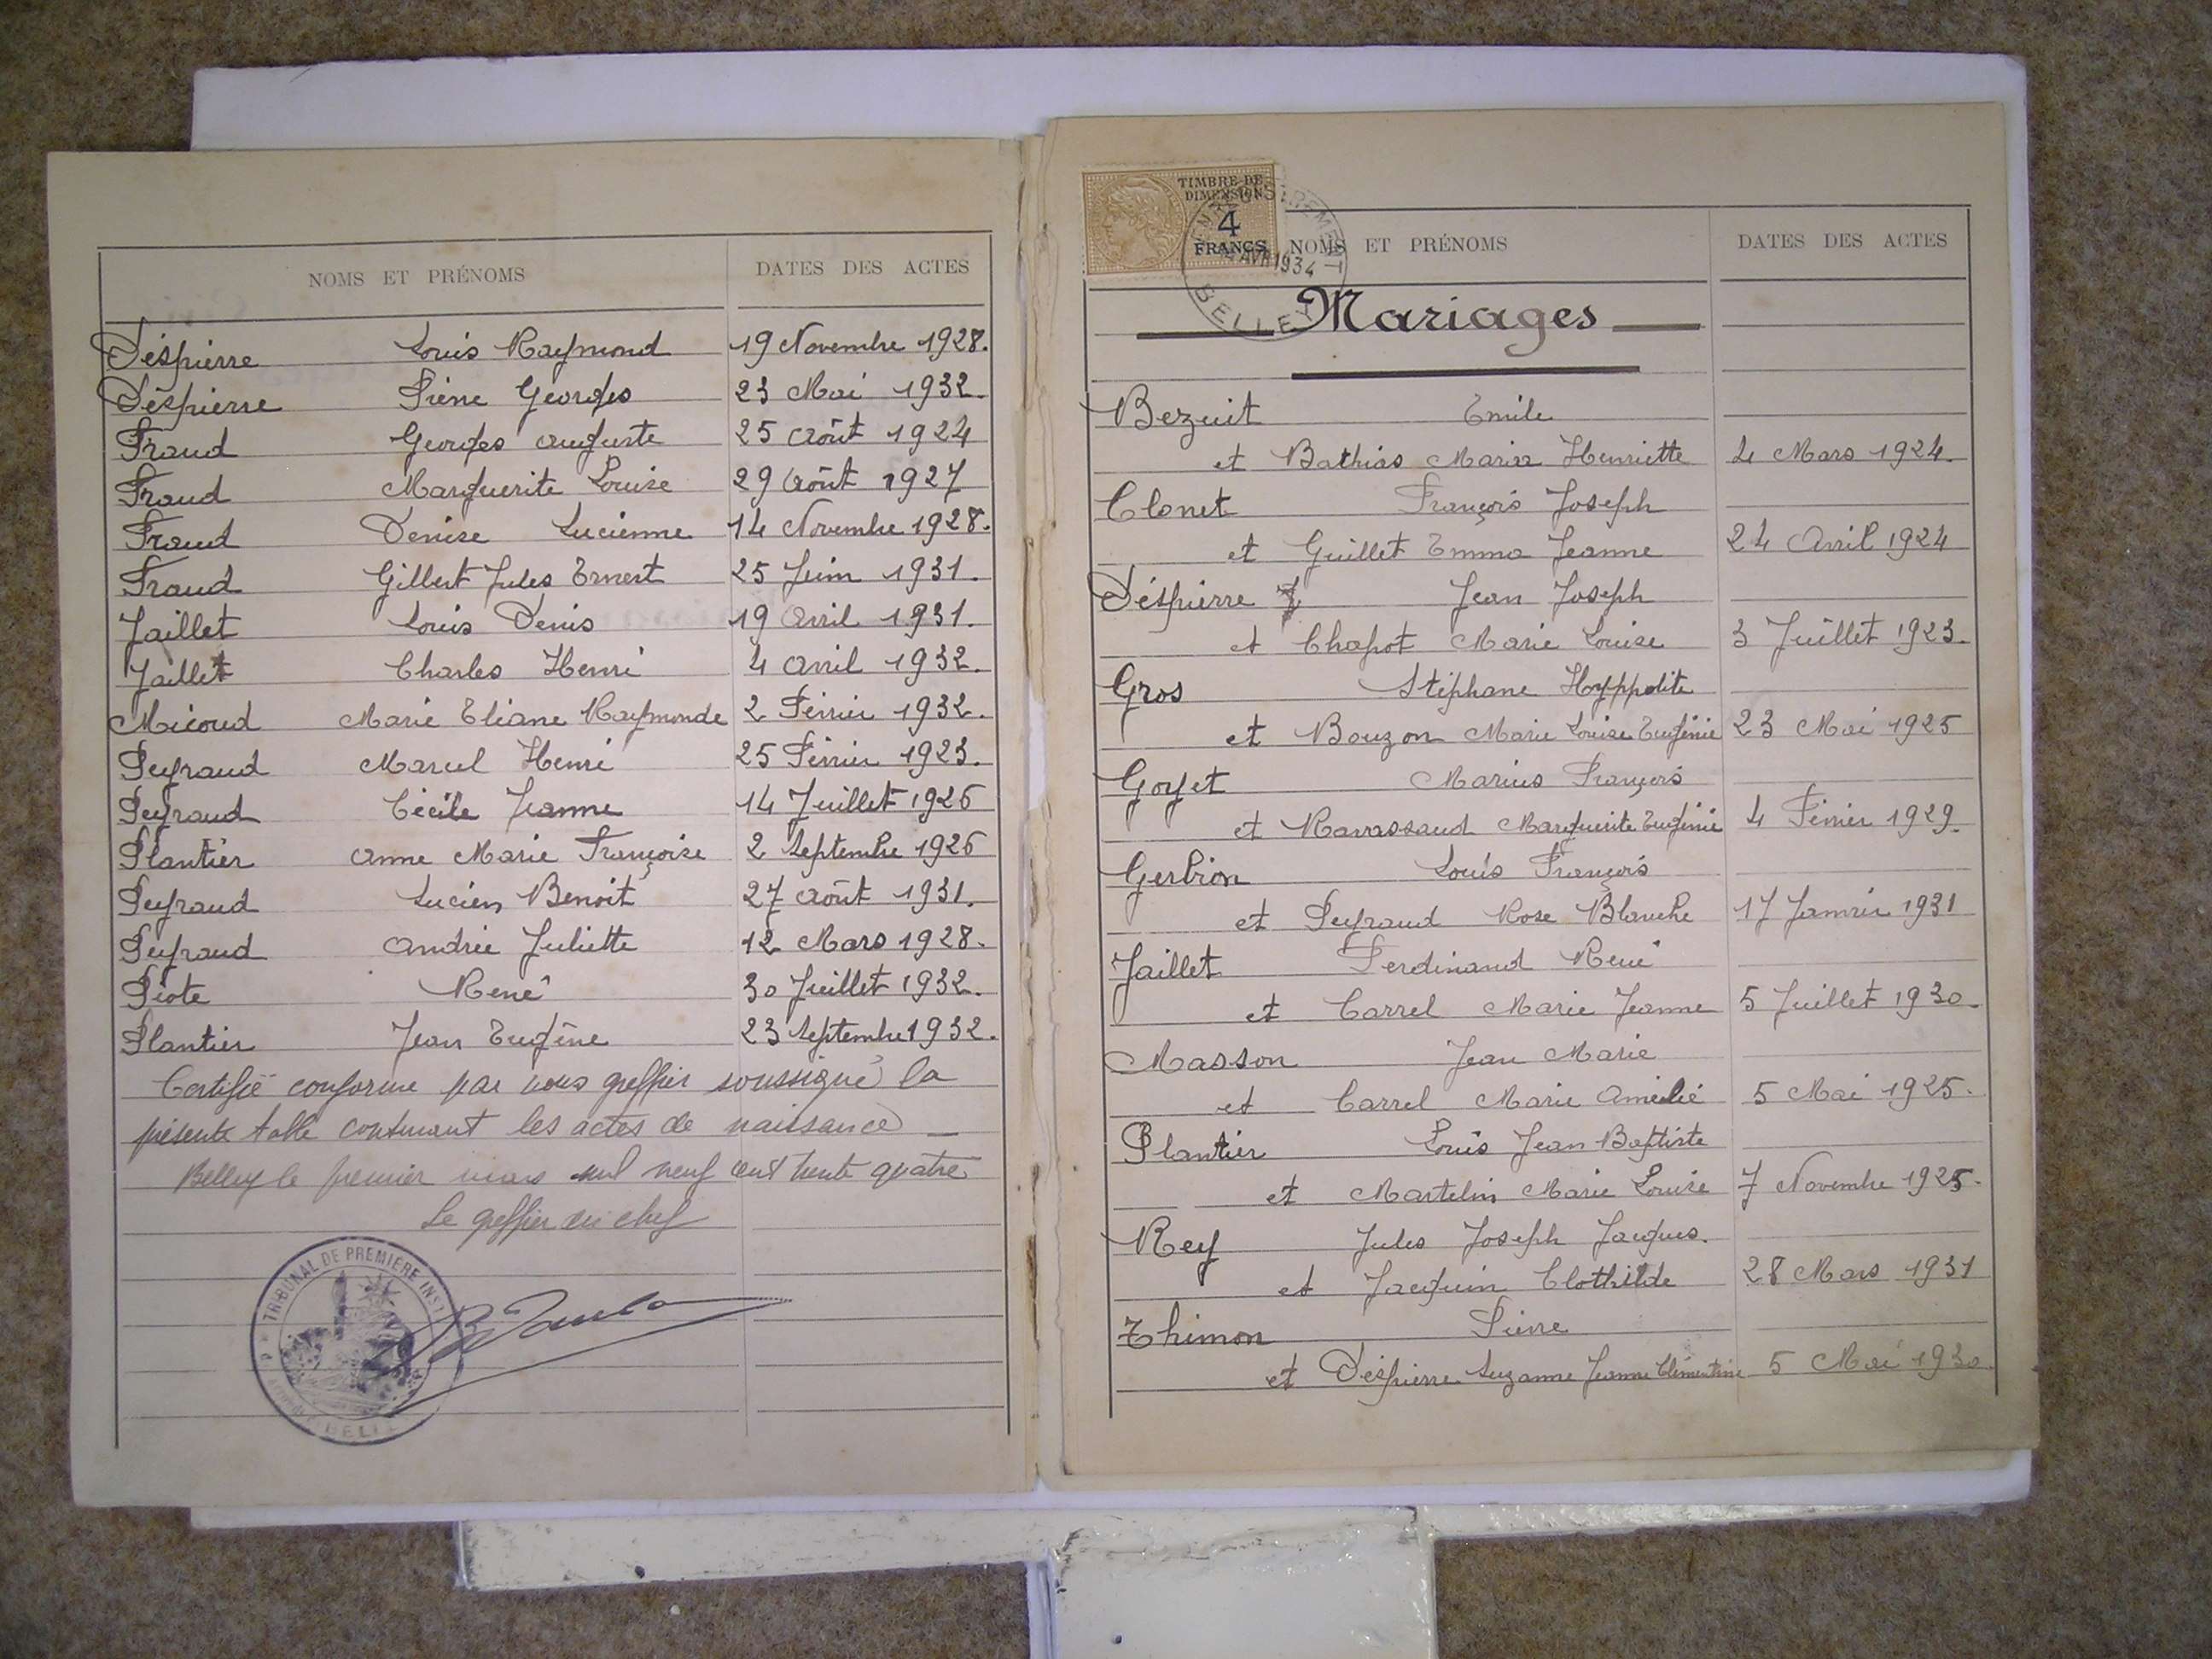 NOMS ET PRÉNOMS DATES DES ACTES
Déspierre Louis Raymond 19 Novembre 1928.
Déspierre Pière Georges 23 Mai 1932.
Fraud Georges Auguste 25 Août 1924
Fraud Marguerite Louise 29 Août 1927
Fraud Denise Lucienne 14 Novembre 1928.
Fraud Gilbert Jules Ernest 25 Juin 1931.
Jaillet Louis Denis 19 Avril 1931.
Jaillet Charles Henri 4 Avril 1932.
Micoud Marie Eliane Raymonde 2 Février 1932.
Peyraud Marcel Henri 25 Février 1923.
Peyraud Cécile Jeanne 14 Juillet 1926
Plantier Anne Marie Françoise 2 Septembre 1926
Peyraud Lucien Benoit 27 Août 1931.
Peyraud Andrée Juliette 12 Mars 1928.
Piote René 30 Juillet 1932.
Plantier Jean Eugène 23 Septembre 1932.
Certifié conforme par nous greffier soussigné la
présente table contenant les actes de naissance
Belley le premier mars mil neuf cent trente quatre
Le greffier en chef
TRIBUNAL DE PREMIERE INST
TIMBRE DE
DIMENSION
4
FRANCS
AVR 1934
BELLEY
NOMS ET PRÉNOMS DATES DES ACTES
Mariages
Bezuit Emile
et Bathias Maria Henriette 4 Mars 1924.
Clonet François Joseph
et Guillet Emma Jeanne 24 Avril 1924
Déspierre Jean Joseph
et Chapot Marie Louise 3 Juillet 1923.
Gros Stéphane Hyppolite
et Bouzon Marie Louise Eugénie 23 Mai 1925
Goyet Marius François
et Ravassaud Marguerite Eugénie 4 Février 1929.
Gerbion Louis François
et Peyraud Rose Blanche 17 Janvier 1931
Jaillet Ferdinand René
et Carrel Marie Jeanne 5 Juillet 1930.
Masson Jean Marie
et Carrel Marie Amélie 5 Mai 1925.
Plantier Louis Jean Baptiste
et Martelin Marie Louise 7 Novembre 1925.
Rey Jules Joseph Jacques.
et Jacquin Clothilde 28 Mars 1931
Thimon Pierre
et Déspierre Suzanne Jeanne Clémentine 5 Mai 1930.